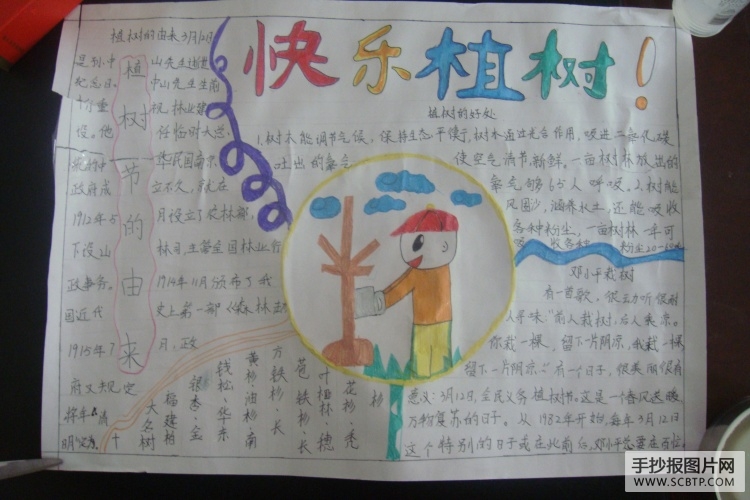 快乐植树!
植树的由来3月12日
植树节的由来
是孙中山先生逝世
纪念日。中山先生生前
十分重视林业建
设。他任临时大总
华民国南京
政府成立不久,就在
1912年5月设立了农林部,
下设山林司,主管全国林业行
政事务。1914年11月颁布了我
国近代史上第一部《森林法》
1915年7月,政
府又规定
植树的好处
1.树木能调节气候,保持生态平衡,树木通过光合作用,吸进二氧化碳
吐出的氧气使空气清节、新鲜。一亩树林放出的
氧气够65人呼吸,2.树能
风固沙,涵养水土,还能吸收
各种粉尘,一亩树林一年可
吸收各种粉尘20-60吨
邓小平栽树
有一首歌,很动听很耐
人寻味"前人栽树,后人乘凉。
你栽一棵,留下一片阴凉,我栽一棵
留下一片阴凉。"有一个日子,很美丽很有
意义:3月12日,全民义务植树节。这是一个春风送暖
万物复苏的日子。从1982年开始,每年3月12日
这个特别的日子或在此前后,邓小平总要在百忙
大冬树
福建柏
银杏·金
钱松·华东
黄杉·油杉·南
方铁杉·长
苞铁杉·长
叶榧林·穗
花杉·秃
杉
手抄报图片网
WWW.SCBTP.COM